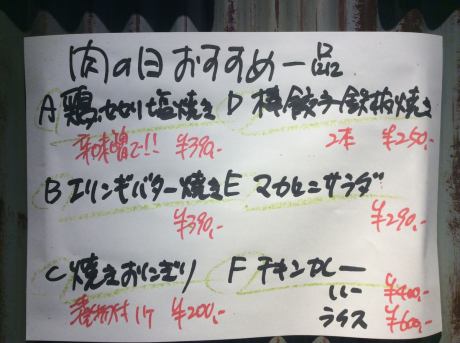 肉の日おすすめ一品
A 鶏せせり塩焼き
辛味噌で!! ¥390.-
B エリンギバター焼き
¥390.-
C 焼きおにぎり
漬物付 1ケ ¥200.-
D 棒餃子鉄板焼き
2本 ¥250.-
E マカロニサラダ
¥290.-
F チキンカレー
ルー ¥400.-
ライス ¥600.-